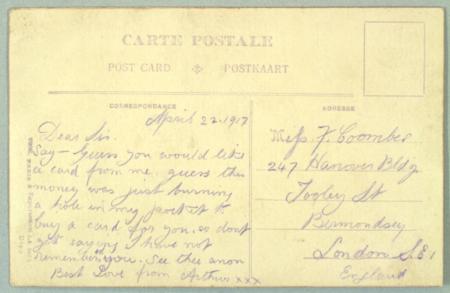 CARTE POSTALE
POST CARD POSTKAART
CORRESPONDANCE
ADRESSE
April 22. 1917
Dear Sis.
Say - Guess you would like
a card from me, guess this
money was just burning
a hole in my pocket to
buy a card for you, so dont
get saying I have not
remembered you. See thee anon
Best Love from Arthur xxx
Miss F. Coomber
247 Hanover Bldg
Tooley St
Bermondsey
London S.E.1
England